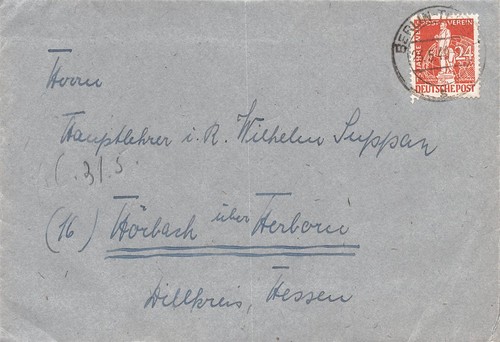 BERLIN
POSTVEREIN
24
DEUTSCHE POST
Herrn
Hauptlehrer i. R. Wilhelm Suppan
(16) Hörbach über Herborn
Dillkreis, Hessen